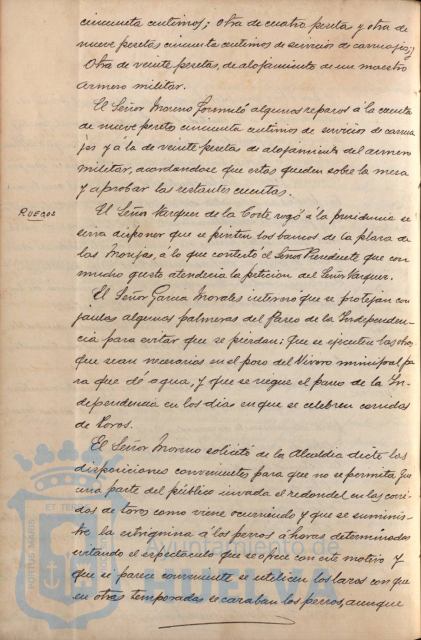 cincuenta centimos; otra de cuatro pesetas y otra de
nueve pesetas cincuenta centimos de servicios de carruajes; y
otra de veinte pesetas, de alojamiento de un maestro
armero militar.
El Señor Moreno formuló algunos reparos á la cuenta
de nueve pesetas cincuenta centimos de servicios de carrua
jes y a la de veinte pesetas de alojamiento del armero
militar, acordandose que estas queden sobre la mesa
y aprobar las restantes cuentas.
RUEGOS
El Señor Vazquez de la Corte rogó á la presidencia se
sirva disponer que se pinten los bancos de la plaza de
las Monjas, á lo que contestó el Señor Presidente que con
mucho gusto atenderia la peticion del Señor Vazquez.
El Señor Garcia Morales interesó que se protejan con
jaulas algunas palmeras del Paseo de la Independen-
cia para evitar que se pierdan; que se ejecuten las obras
que sean necesarias en el pozo del Vivero municipal pa
ra que dé agua, y que se riegue el paseo de la In-
dependencia en los dias en que se celebren corridas
de toros.
El Señor Moreno solicitó de la Alcaldia dicte las
disposiciones convenientes para que no se permita que
una parte del público invada el redondel en las corri
das de toros como viene ocurriendo y que se suminis-
tre la estrignina á los perros a horas determinadas
evitando el espectaculo que se ofrece con este motivo y
que si parece conveniente se utilicen los lazos con que
en otras temporadas se cazaban los perros, aunque
Ayuntamiento de
HUELVA